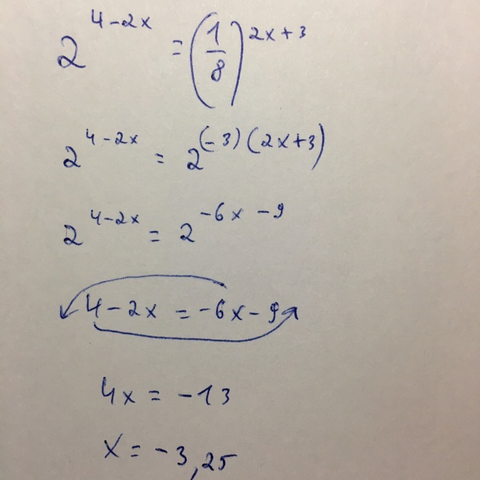 2^{4-2x} = (1/8)^{2x+3}
2^{4-2x} = 2^{(-3)(2x+3)}
2^{4-2x} = 2^{-6x-9}
4-2x = -6x-9
4x = -13
x = -3,25